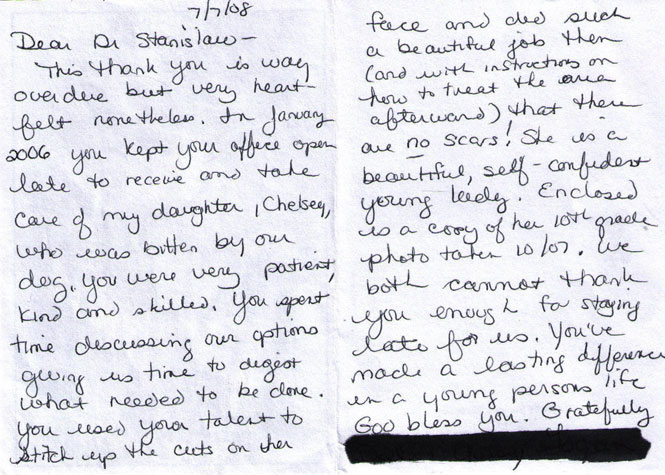 7/7/08
Dear Dr Stanislaw -
This thank you is way
overdue but very heart-
felt nonetheless. In January
2006 you kept your office open
late to receive and take
care of my daughter, Chelsey,
who was bitten by our
dog. You were very patient,
kind and skilled. You spent
time discussing our options
giving us time to digest
what needed to be done.
You used your talent to
stitch up the cuts on her
face and did such
a beautiful job then
(and with instructions on
how to treat the area
afterward) that there
are no scars! She is a
beautiful, self-confident
young lady. Enclosed
is a copy of her 10th grade
photo taken 10/07. We
both cannot thank
you enough for staying
late for us. You've
made a lasting difference
in a young persons life
God bless you. Gratefully